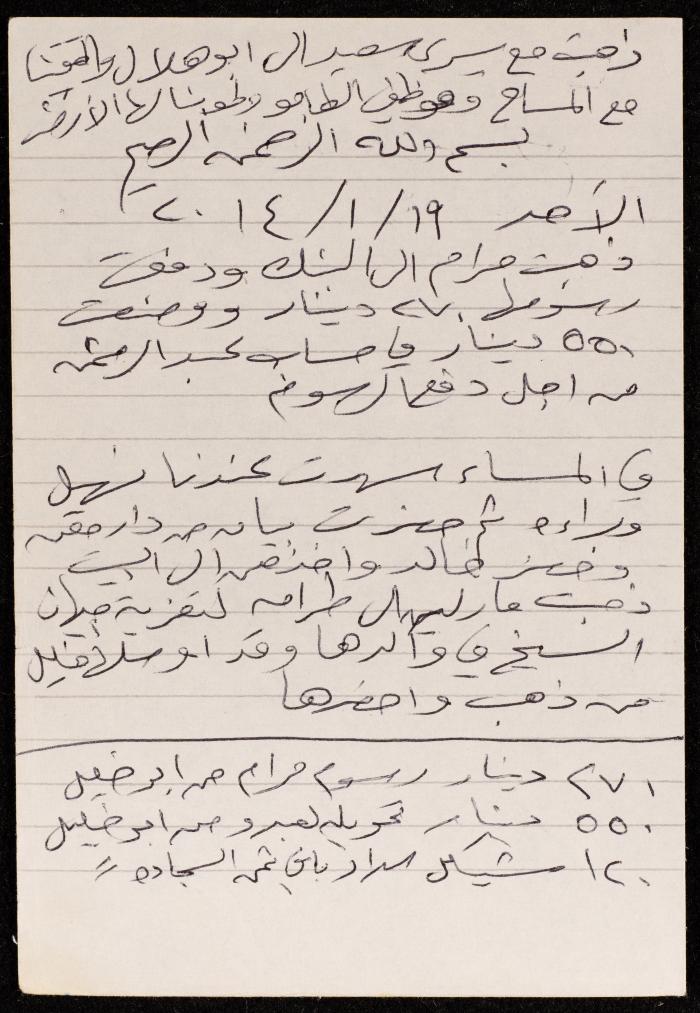 ذهبت مع يسرى سعيد الى ابو هلال والتقينا
مع المساح وموظف الطابو وطوبنا لها الأرض
بسم الله الرحمن الرحيم
الأحد ١٩/١/٢٠١٤
ذهبت مرام الى البنك ودفعت
رسومها ٢٧٠ دينار ووضعت
٥٥٠ دينار في حساب عبد الرحمن
من اجل دفع الرسوم
في المساء سهرت عندنا نهيل
وراءه ثم حضرت بيان من دار
وحضر خالد واخذهن الى البيت
ذهبت الى طرامه لتعزية جهان
الشيخ في والدها وقد اوصلها خليل
من ذهب واحضرها
٢٧٠ دينار رسوم مرام من ابو خليل
٥٥٠ دينار تحويل لعبدو من ابو خليل
١٢٠ شيكل سداد باقي ثمن السجاده